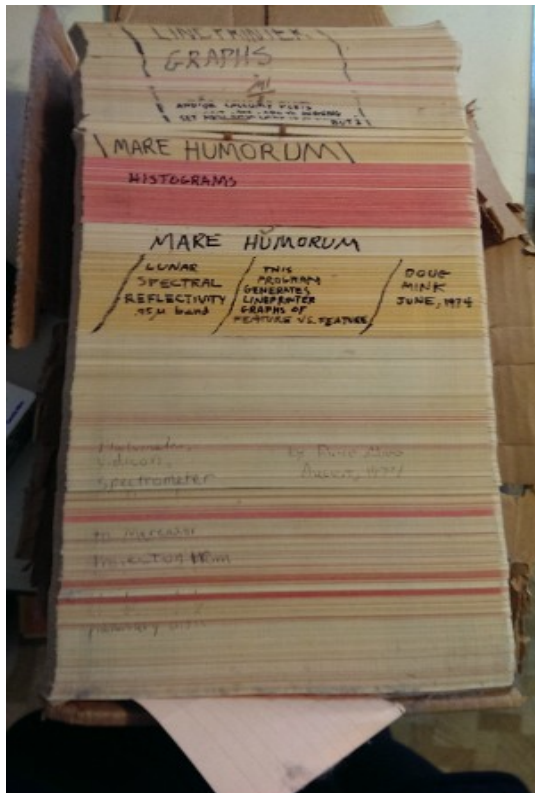 LINEPRINTER
GRAPHS
AND/OR CALCOMP PLOTS
SET
\ MARE HUMORUM \
HISTOGRAMS
MARE HUMORUM
LUNAR
SPECTRAL
REFLECTIVITY
.95µ band
THIS
PROGRAM
GENERATES
LINEPRINTER
GRAPHS OF
FEATURE VS. FEATURE
DOUG
MINK
JUNE, 1974
Vidicon,
Spectrometer
by Doug Mink
August, 1974
to mercator
Projection from
planetary disk